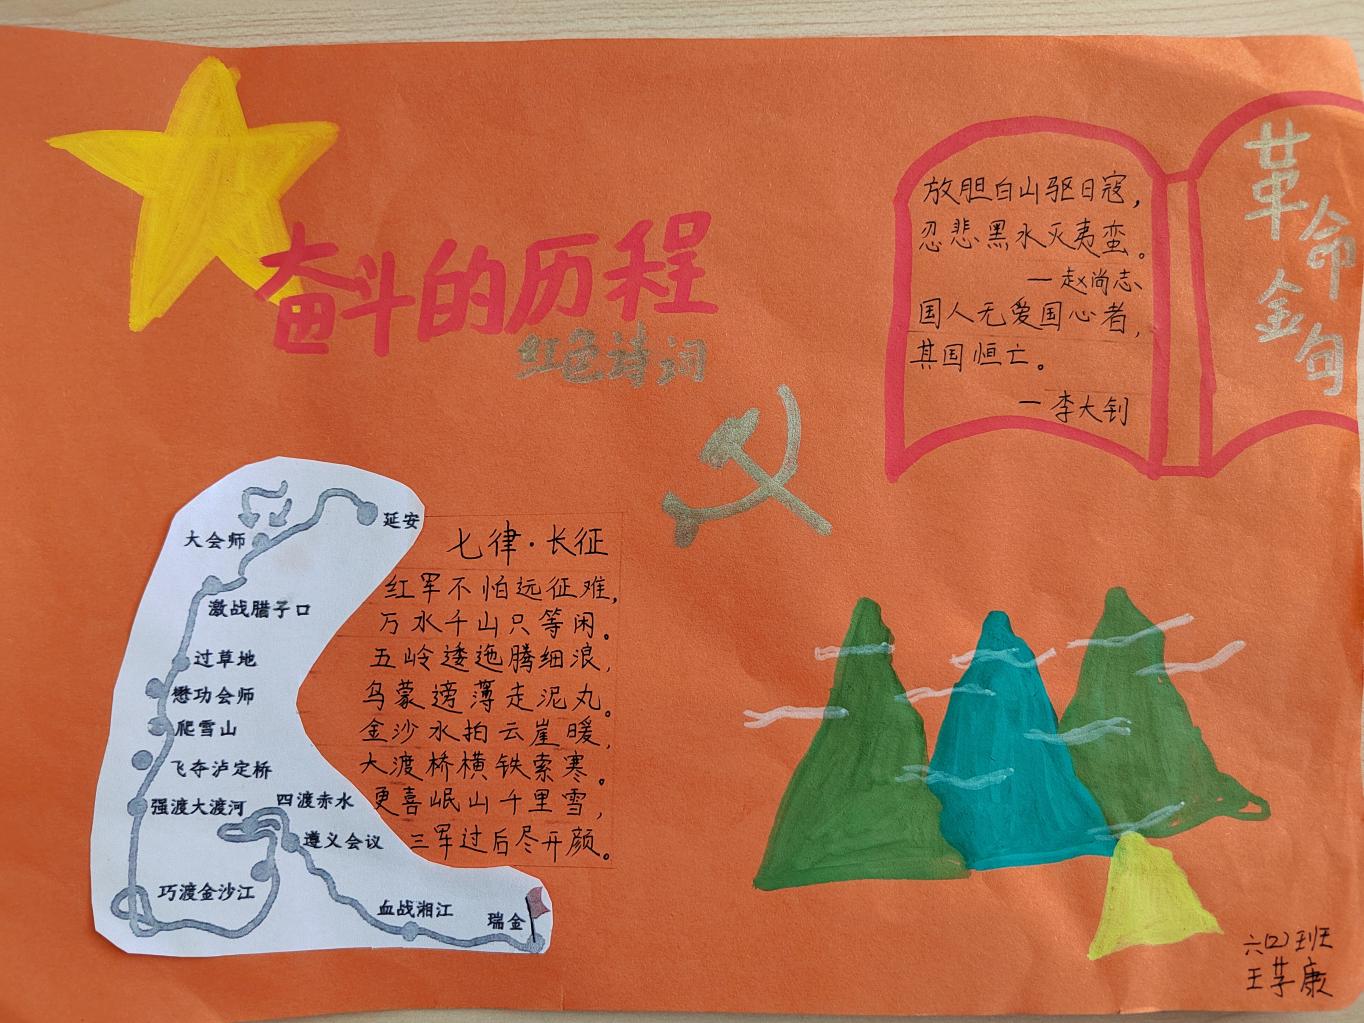 奋斗的历程
红色诗词
放胆白山驱日寇，
忍悲黑水灭夷蛮。
—赵尚志
国人无爱国心者，
其国恒亡。
—李大钊
革命金句
延安
大会师
激战腊子口
过草地
懋功会师
爬雪山
飞夺泸定桥
强渡大渡河
四渡赤水
遵义会议
巧渡金沙江
血战湘江
瑞金
七律·长征
红军不怕远征难，
万水千山只等闲。
五岭逶迤腾细浪，
乌蒙磅薄走泥丸。
金沙水拍云崖暖，
大渡桥横铁索寒。
更喜岷山千里雪，
三军过后尽开颜。
六(2)班